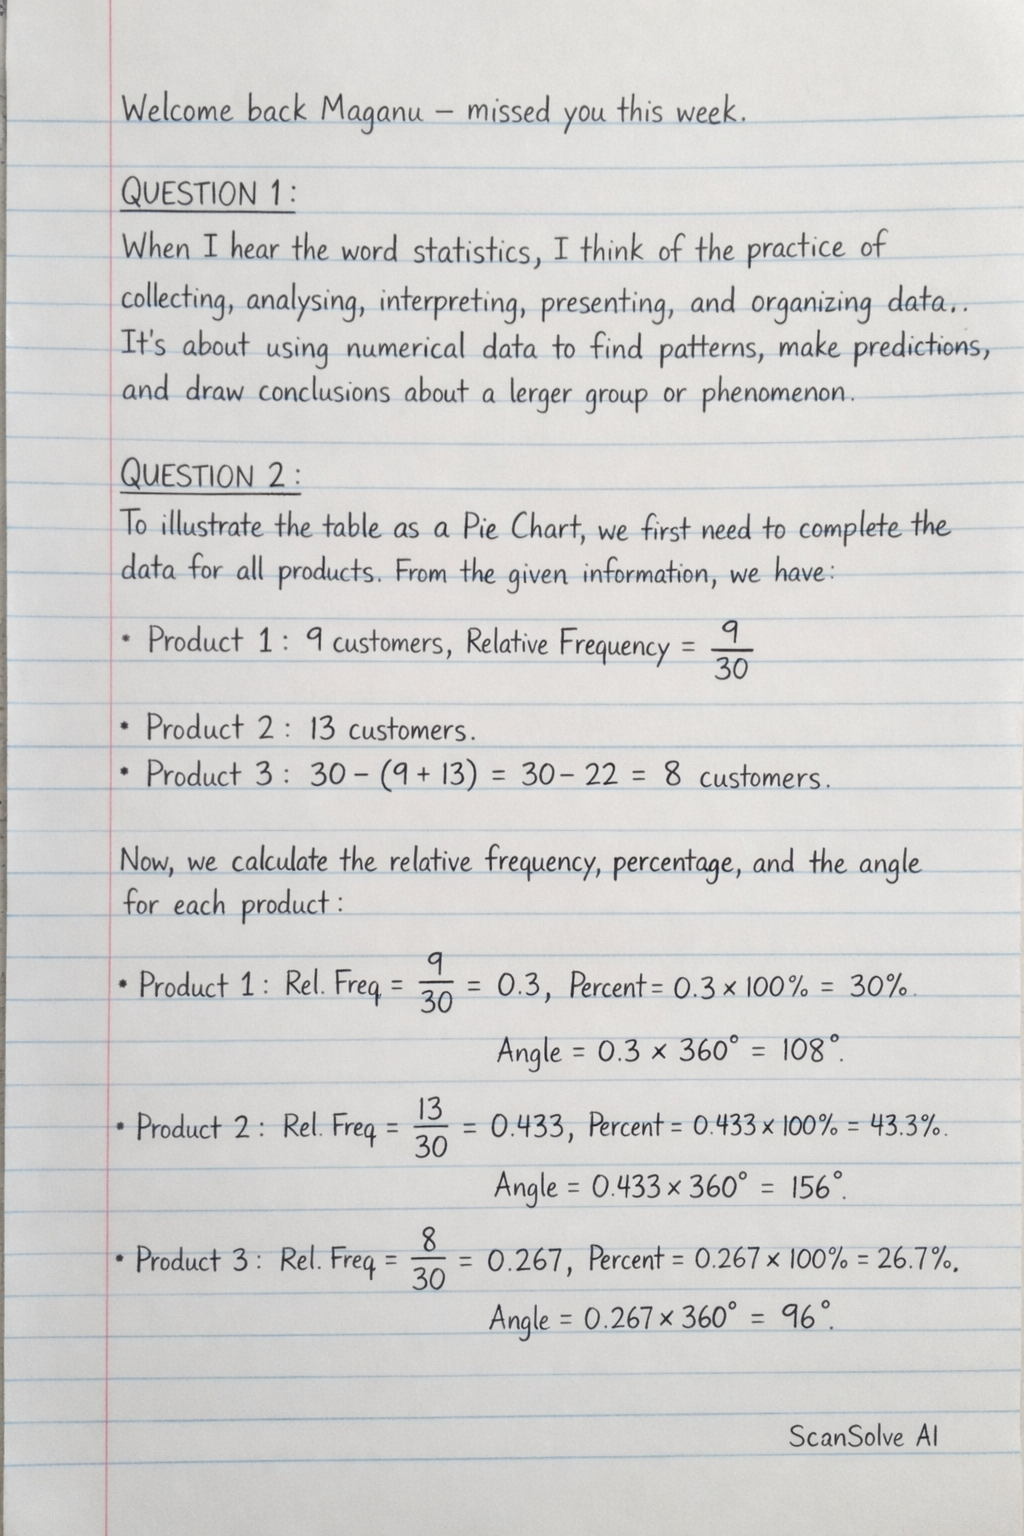 Welcome back Maganu – missed you this week.
QUESTION 1:
When I hear the word statistics, I think of the practice of
collecting, analysing, interpreting, presenting, and organizing data..
It's about using numerical data to find patterns, make predictions,
and draw conclusions about a lerger group or phenomenon.
QUESTION 2:
To illustrate the table as a Pie Chart, we first need to complete the
data for all products. From the given information, we have:
• Product 1: 9 customers, Relative Frequency = 9/30
• Product 2: 13 customers.
• Product 3: 30 – (9 + 13) = 30 – 22 = 8 customers.
Now, we calculate the relative frequency, percentage, and the angle
for each product:
• Product 1: Rel. Freq = 9/30 = 0.3, Percent = 0.3 × 100% = 30%.
Angle = 0.3 × 360° = 108°.
• Product 2: Rel. Freq = 13/30 = 0.433, Percent = 0.433 × 100% = 43.3%.
Angle = 0.433 × 360° = 156°.
• Product 3: Rel. Freq = 8/30 = 0.267, Percent = 0.267 × 100% = 26.7%.
Angle = 0.267 × 360° = 96°.
ScanSolve AI